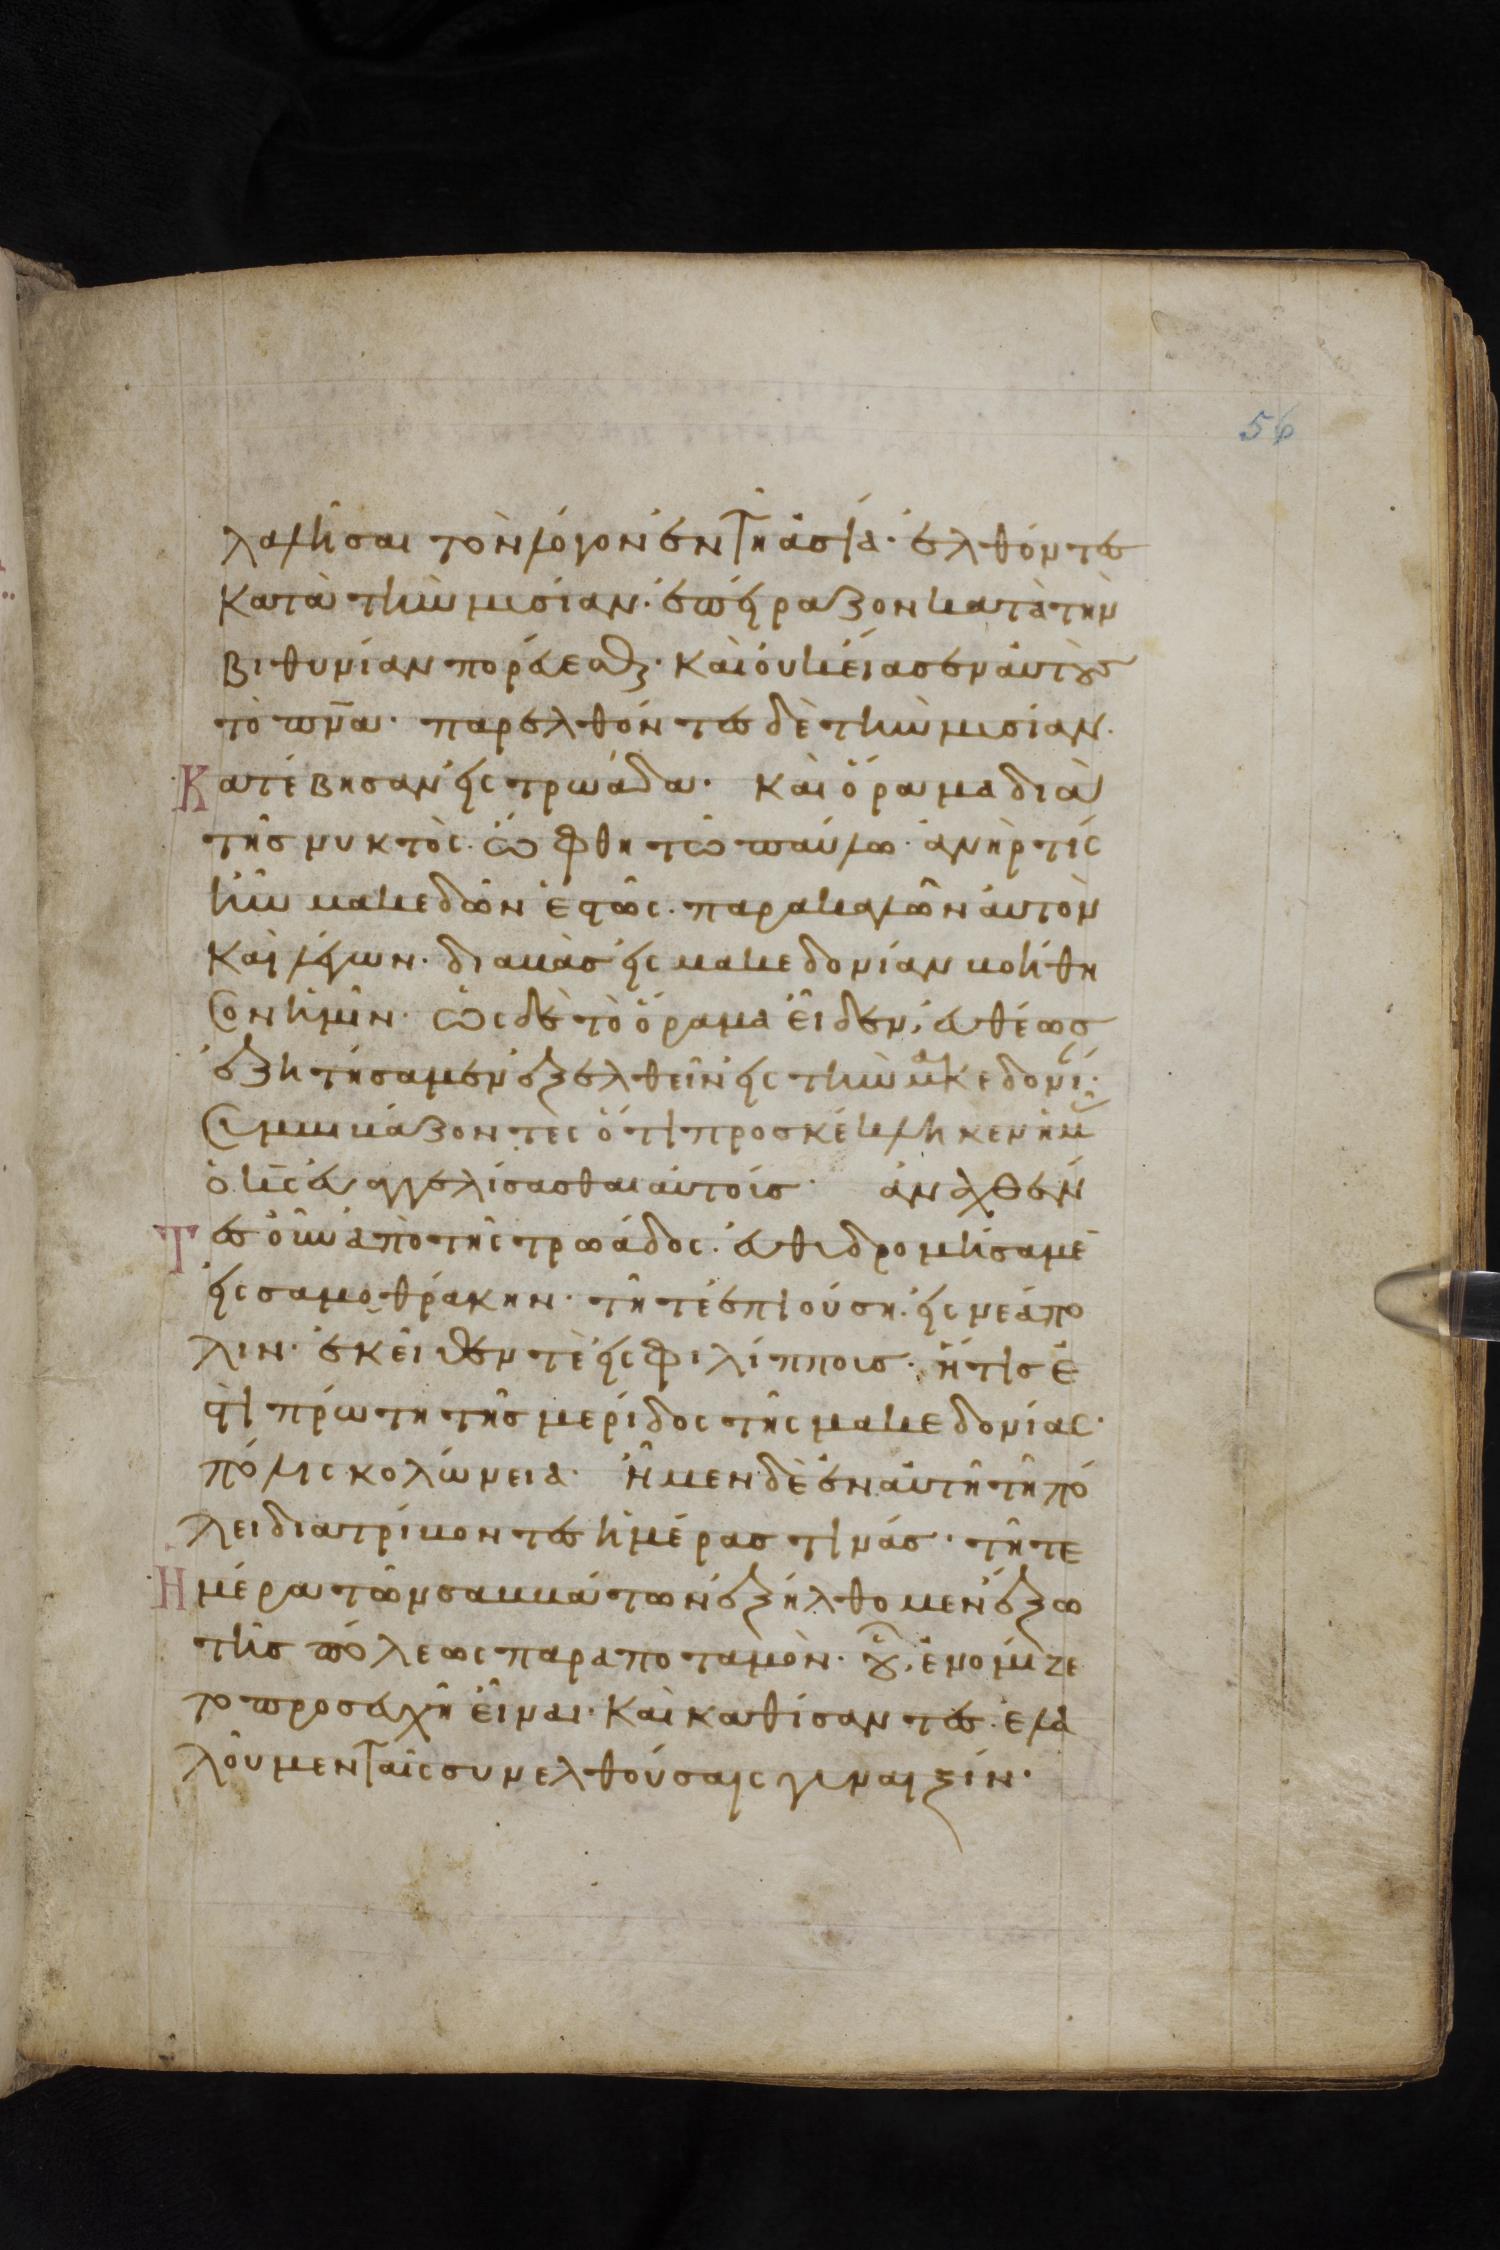 λαλῆσαι τὸν λόγον ἐν τῆ ἀσία· ἐλθόντες
κατὰ τὴν μισίαν· ἐπείραζον κατὰ τὴν
βιθυνίαν πορεύεσθαι· καὶ οὐκ εἴασεν αὐτοὺς
τὸ πν̅α· παρελθόντες δὲ τὴν μισίαν·
Κατέβησαν εἰς τρωάδα· καὶ ὅραμα διὰ
τῆς νυκτὸς· ὤφθη τῶ παύλω· ἀνὴρ τίς
ἦν μακεδῶν ἑστῶς· παρακαλῶν αὐτὸν
καὶ λέγων· διαβὰς εἰς μακεδονίαν βοήθη
σον ἡμῖν· ὡς δὲ τὸ ὅραμα εἶδεν, εὐθέως
ἐζητήσαμεν ἐξελθεῖν εἰς τὴν μακεδονί
συμβιβάζοντες ὅτι προσκέκληκεν ἡμ
ὁ κ̅ς εὐαγγελίσασθαι αὐτοίς· ἀναχθέν
Τες οὖν ἀπὸ τῆς τρωάδος· εὐθυδρομήσαμε
εἰς σαμοθράκην· τῆ τὲ ἐπιούση· εἰς νεάπο
λιν· ἐκεῖθεν τὲ εἰς φιλίππους· ἥτις ἐ
στὶ πρώτη τῆς μερίδος τῆς μακεδονίας·
πόλις κολώνεια· ἦμεν δὲ ἐν αὐτῆ τῆ πό
λει διατρίβοντες ἡμέρας τινάς· τῆ τε
Ημέρα τῶν σαββάτων ἐξήλθομεν ἔξω
τῆς πόλεως παρα ποταμὸν· οὗ, ἐνομίζε
το προσευχὴ εἶναι· καὶ καθίσαντες· ἐλα
λοῦμεν ταῖς συνελθούσαις γυναιξίν·
56